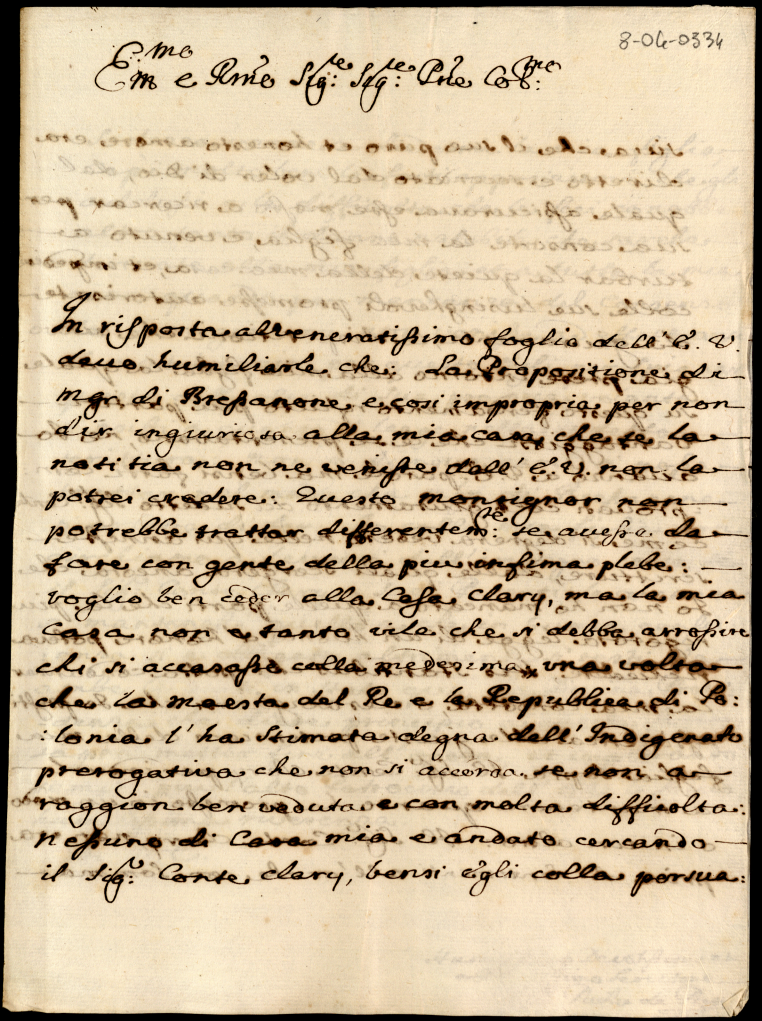 8-04-0334
Em.mo e Rmo Sig:re Sig:re Prne Col:mo
In risposta al veneratissimo foglio dell' E. V.
devo humiliarle che: La Propositione di
Mgr. di Bressanone e cosi impropria per non
dir ingiuriosa alla mia casa che se la
notitia non ne venisse dall' E. V. non la
potrei credere: Questo monsignor non
potrebbe trattar differentem:te se avesse da
fare con gente della piu infima plebe:
voglio ben ceder alla Casa Clary, ma la mia
Casa non e tanto vile che si debba arrossire
chi si accasasse colla medesima, una volta
che la maesta del Re e la Republica di Po:
:lonia l' ha stimata degna dell' Indigenato
prerogativa che non si accorda se non a
raggion ben veduta e con molta difficolta:
nessuno di Casa mia e andato cercando
il Sig:r Conte Clary, bensi egli colla persua: